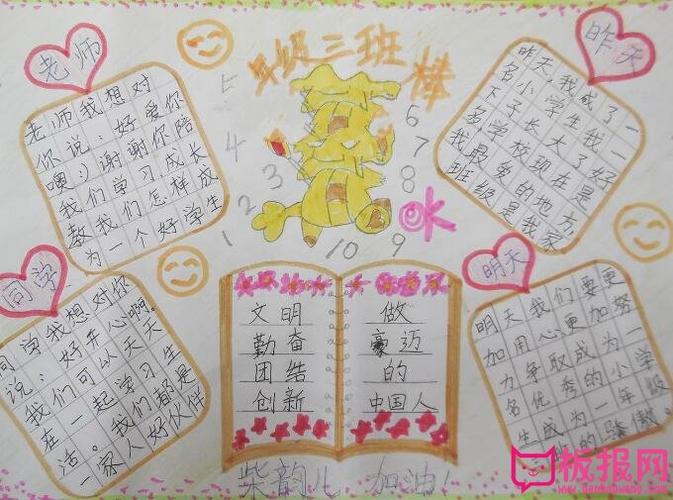 年级三班
棒
老师
老师我想对
你说：好爱你
噢:)谢谢你陪
我们学习,成长
教我们怎样成
为一个好学生
昨天
昨天,我成了一
名小学生我一
下子长大了好
多学校现在是
我最的地方,
班级是我家
1
2
3
4
5
6
7
8
9
10
同学
同学我想对你
说：好开心啊.
我们可以天天
在一起学习生
活。我们都是
一家人好伙伴
文明
勤奋
团结
创新
做
豪迈
的
中国人
明天
明天我们要更
加用心更加努
力争取成为一
名优秀的小学
生成为一年级
的骄傲.
柴韵儿 加油!
板报网